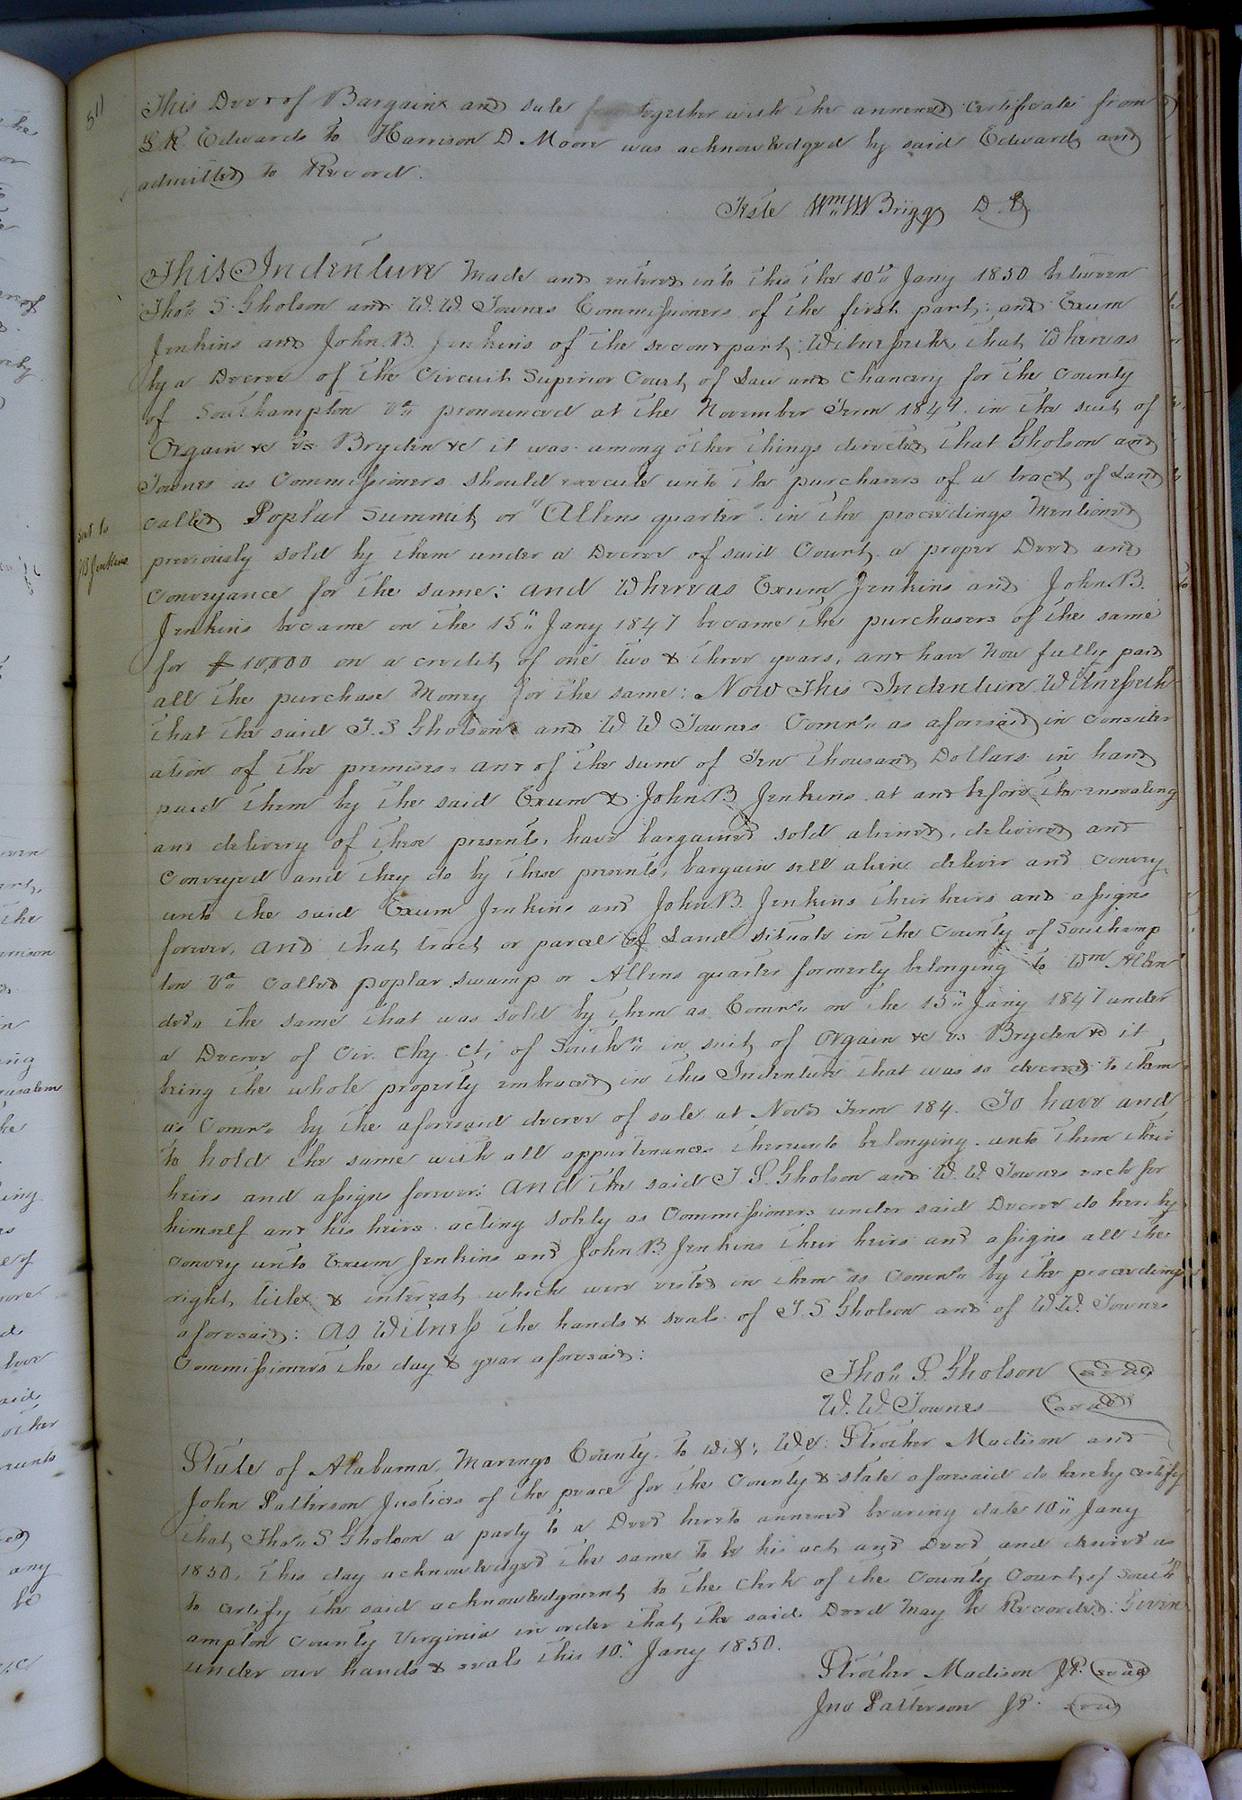 511
This Deed of Bargain and sale together with the annexed certificate from
L R Edwards to Harrison D Moore was acknowledged by said Edwards and
admitted to Record.
Teste Wm W Briggs D. C
This Indenture Made and entered into this the 10" Jany 1850 between
Thos S. Gholson and W. W. Townes Commissioners of the first part, and Exum
Jenkins and John B. Jenkins of the second part: Witnesseth, that Whereas
by a Decree of the Circuit Superior Court of Law and Chancery for the County
of Southampton Va pronounced at the November Term 1847 in the suit of
Orgain &c vs Bryden &c it was among other things directed that Gholson and
Townes as Commissioners should execute unto the purchasers of a tract of Land
called Poplar Summit or "Allens quarter" in the proceedings Mentioned
previously sold by them under a Decree of said Court, a proper Deed and
Conveyance for the same: and Whereas Exum Jenkins and John B.
Jenkins became on the 15" Jany 1847 became the purchasers of the same
for $10,000 on a credit of one two & three years, and have now fully paid
all the purchase Money for the same: Now This Indenture Witnesseth
that the said T. S Gholson and W W Townes Comrs as aforesaid in consider
ation of the premises and of the sum of Ten thousand Dollars in hand
paid them by the said Exum & John B Jenkins at and before the ensealing
and delivery of these presents, have bargained sold aliened, delivered and
Conveyed and they do by these presents, bargain sell alien deliver and convey
unto the said Exum Jenkins and John B. Jenkins their heirs and assigns
forever, and that tract or parcel of Land situate in the County of Southamp
ton Va called poplar swamp or Allens quarter formerly belonging to Wm Allen
decd the same that was sold by them as Comrs on the 15" Jany 1847 under
a Decree of Cir. Chy. Ct, of South" in suit of Orgain &c vs Bryden &c it
being the whole property embraced in this Indenture that was so decreed to them
as Comrs by the aforesaid decree of sale at Nov Term 184. To have and
to hold the same with all appurtenances thereunto belonging unto them their
heirs and assigns forever: and the said T S. Gholson and W. W. Townes each for
himself and his heirs acting solely as Commissioners under said Decree do hereby
convey unto Exum Jenkins and John B Jenkins their heirs and assigns all the
right, title & interest which were vested in them as Comrs by the proceedings
aforesaid: As Witness the hands & seals of T. S Gholson and of W. W. Townes
Commissioners the day & year aforesaid:
Thos S. Gholson Seal
W. W. Townes Seal
State of Alabama, Marengo County. to wit: We: Strother Madison and
John Patterson Justices of the peace for the County & state aforesaid do hereby certify
that Thos S Gholson a party to a Deed hereto annexed bearing date 10" Jany
1850, this day acknowledged the same to be his act and Deed and desired us
to certify the said acknowledgment to the Clerk of the County Court of South
ampton County Virginia in order that the said Deed May be Recorded. Given
under our hands & seals this 10" Jany 1850.
Strother Madison JP. Seal
Jno Patterson JP. Seal
sent to
JB Jenkins